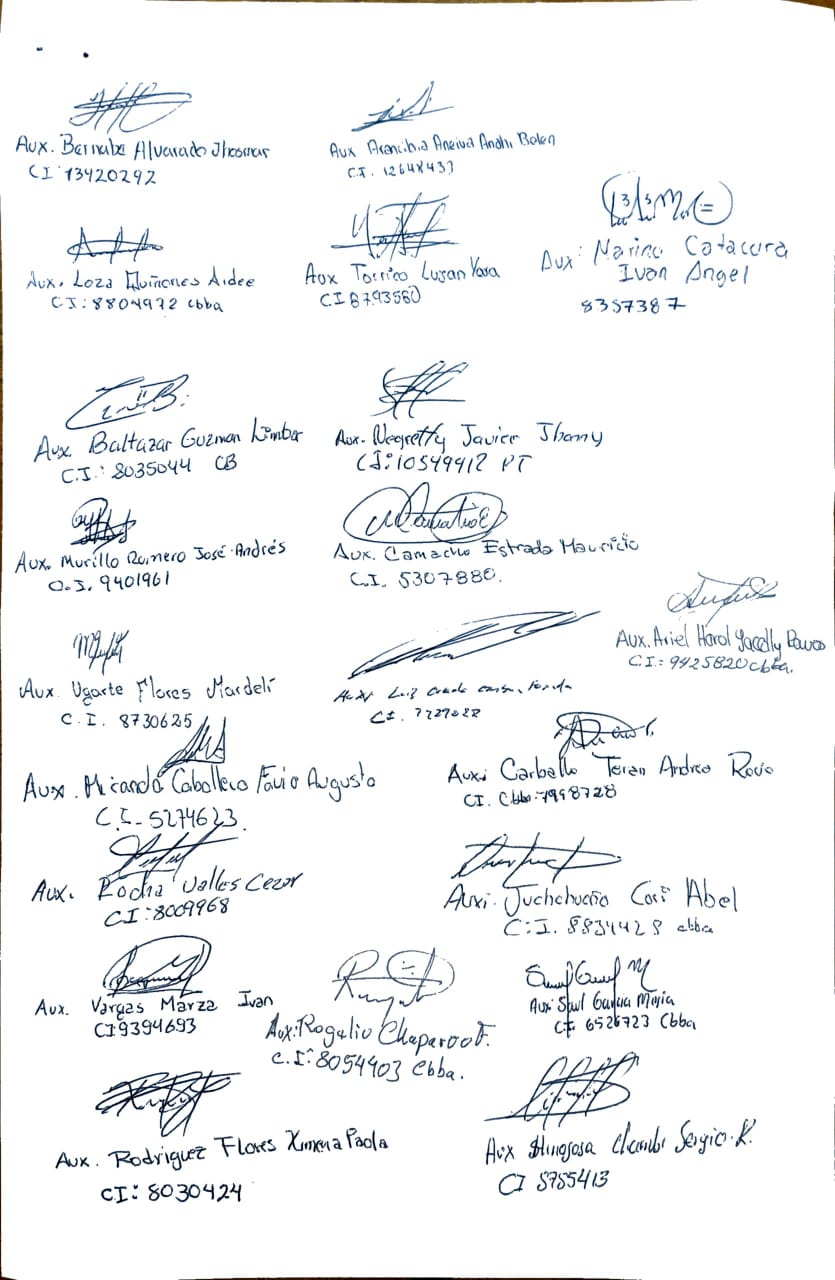 Aux. Bernabe Alvarado Jhosmar
CI 13420292
Aux Arancibia Aneiva Anahi Belen
C.I. 12648433
Aux. Loza Quiñones Aidee
C.I: 8804972 cbba
Aux Torrico Lujan Yara
C.I 8793560
Aux: Marino Catacora
Ivan Angel
8357387
Aux. Baltazar Guzman Limber
C.I.: 8035044 CB
Aux. Negretty Javier Jhanny
CI: 10549412 PT
Aux. Murillo Romero José Andrés
C.I. 9401961
Aux. Camacho Estrada Mauricio
C.I. 5307880.
Aux. Ariel Harol
C.I.: 9425820 cbba.
Aux. Ugarte Flores Mardeli
C.I. 8730625
Aux. Luiz
CI.
Aux. Miranda Caballero Favio Augusto
C.I. 5274623
Aux: Carballo Teran Andrea Rocio
CI. Cbba 7998728
Aux. Rocha Valles Cezar
CI: 8009968
Aux: Juchchucho Cori Abel
C.I. 8834428 cbba
Aux. Vargas Marza Ivan
CI 9394693
Aux: Rogelio Chaparro F.
C.I: 8054403 Cbba.
Aux: Saul Garcia Mejia
CI 6526723 Cbba
Aux. Rodriguez Flores Ximena Paola
CI: 8030424
Aux Hinojosa Chambi Sergio R.
CI 5785413